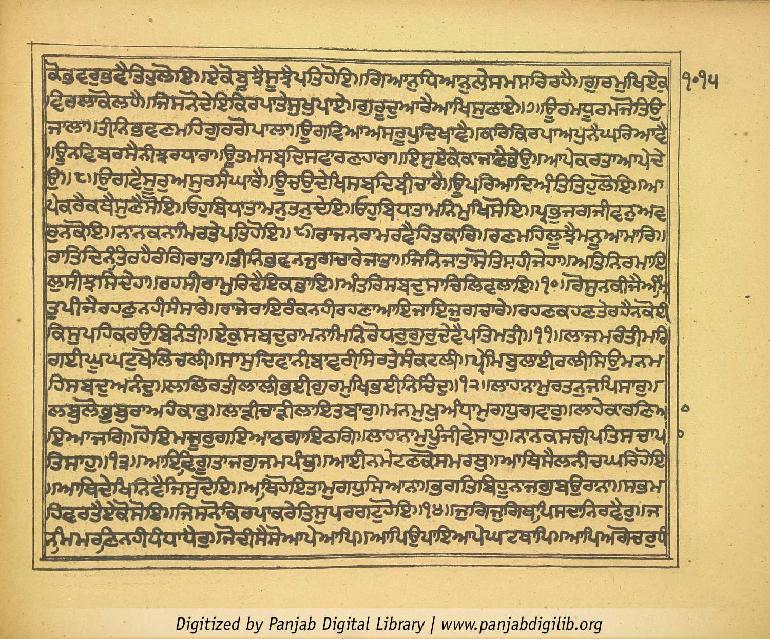 ਕੋਭਵਰੁਭਵੈਤਿਹੁਲੋਇ॥ਏਕੋਬੂਝੈਸੂਝੈਪਤਿਹੋਇ॥ਗਿਆਨੁਧਿਆਨੁਲੇਸਮਸਰਿਰਹੈ॥ਗੁਰਮੁਖਿਏਕੁ ੧੦੧੫
ਵਿਰਲਾਕੋਲਹੈ॥ਜਿਸਨੋਦੇਇਕਿਰਪਾਤੇਸੁਖੁਪਾਏ॥ਗੁਰੂਦੁਆਰੈਆਖਿਸੁਣਾਏ॥੭॥ਊਰਮਧੂਰਮਜੋਤਿਉ
ਜਾਲਾ॥ਤੀਨਿਭਵਣਮਹਿਗੁਰਗੋਪਾਲਾ॥ਊਗਵਿਆਅਸਰੂਪੁਦਿਖਾਵੈ॥ਕਰਿਕਿਰਪਾਅਪੁਨੈਘਰਿਆਵੈ
॥ਊਨਵਿਬਰਸੈਨੀਝਰਧਾਰਾ॥ਊਤਮਸਬਦਿਸਵਾਰਣਹਾਰਾ॥ਇਸੁਏਕੇਕਾਜਾਣੈਭੇਉ॥ਆਪੇਕਰਤਾਆਪੇਦੇ
ਉ॥੮॥ਉਗਵੈਸੂਰੁਅਸੁਰਸੰਘਾਰੈ॥ਊਚਉਦੇਖਿਸਬਦਿਬੀਚਾਰੈ॥ਊਪਰਿਆਦਿਅੰਤਿਤਿਹੁਲੋਇ॥ਆ
ਪੇਕਰੈਕਥੈਸੁਣੈਸੋਇ॥ਓਹੁਬਿਧਾਤਾਮਨੁਤਨੁਦੇਇ॥ਓਹੁਬਿਧਾਤਾਮਨਿਮੁਖਿਸੋਇ॥ਪ੍ਰਭੁਜਗਜੀਵਨੁਅਵ
ਰੁਨਕੋਇ॥ਨਾਨਕਨਾਮਿਰਤੇਪਤਿਹੋਇ॥੯॥ਰਾਜਨਰਾਮਰਵੈਹਿਤਕਾਰਿ॥ਰਣਮਹਿਲੂਝੈਮਨੂਆਮਾਰਿ॥
ਰਾਤਿਦਿਨੰਤਿਰਹੈਰੰਗਿਰਾਤਾ॥ਤੀਨਿਭਵਨਜੁਗਚਾਰੇਜਾਤਾ॥ਜਿਨਿਜਾਤਾਸੋਤਿਸਹੀਜੇਹਾ॥ਅਤਿਨਿਰਮਾਇ
ਲੁਸੀਝਸਿਦੇਹਾ॥ਰਹਸੀਰਾਮੁਰਿਦੈਇਕਭਾਇ॥ਅੰਤਰਿਸਬਦੁਸਾਚਿਲਿਵਲਾਇ॥੧੦॥ਰੋਸੁਨਕੀਜੈਅੰਮ੍ਰਿ
ਤੁਪੀਜੈਰਹਣੁਨਹੀਸੰਸਾਰੇ॥ਰਾਜੇਰਾਇਰੰਕਨਹੀਰਹਣਾਆਇਜਾਇਜੁਗਚਾਰੇ॥ਰਹਣਕਹਣਤੇਰਹੈਨਕੋਈ
ਕਿਸੁਪਹਿਕਰਉਬਿਨੰਤੀ॥ਏਕੁਸਬਦੁਰਾਮਨਾਮਨਿਰੋਧਰੁਗੁਰੁਦੇਵੈਪਤਿਮਤੀ॥੧੧॥ਲਾਜਮਰੰਤੀਮਰਿ
ਗਈਘੂਘਟੁਖੋਲਿਚਲੀ॥ਸਾਸੁਦਿਵਾਨੀਬਾਵਰੀਸਿਰਤੇਸੰਕਟਲੀ॥ਪ੍ਰੇਮਿਬੁਲਾਈਰਲੀਸਿਉਮਨਮ
ਹਿਸਬਦੁਅਨੰਦੁ॥ਲਾਲਿਰਤੀਲਾਲੀਭਈਗੁਰਮੁਖਿਭਈਨਿਚਿੰਦੁ॥੧੨॥ਲਾਹਨਾਮੁਰਤਨੁਜਪਿਸਾਰੁ॥
ਲਬੁਲੋਭੁਬੁਰਾਅਹੰਕਾਰੁ॥ਲਾੜੀਚਾੜੀਲਾਇਤਬਾਰੁ॥ਮਨਮੁਖੁਅੰਧਾਮੁਗਧੁਗਵਾਰੁ॥ਲਾਹੇਕਾਰਣਿਆ
ਇਆਜਗਿ॥ਹੋਇਮਜੂਰੁਗਇਆਠਗਾਇਠਗਿ॥ਲਾਹਾਨਾਮੁਪੂੰਜੀਵੇਸਾਹੁ॥ਨਾਨਕਸਚੀਪਤਿਸਚਾਪਾ
ਤਿਸਾਹੁ॥੧੩॥ਆਇਵਿਗੂਤਾਜਗੁਜਮਪੰਥੁ॥ਆਈਨਮੇਟਣਕੋਸਮਰਥੁ॥ਆਥਿਸੈਲਨੀਚਘਰਿਹੋਇ
॥ਆਥਿਦੇਖਿਨਿਵੈਜਿਸੁਦੋਇ॥ਆਥਿਹੋਇਤਾਮੁਗਧੁਸਿਆਨਾ॥ਭਗਤਿਬਿਹੂਨਾਜਗੁਬਉਰਾਨਾ॥ਸਭਮ
ਹਿਵਰਤੈਏਕੋਸੋਇ॥ਜਿਸਨੋਕਿਰਪਾਕਰੇਤਿਸੁਪਰਗਟੁਹੋਇ॥੧੪॥ਜੁਗਿਜੁਗਿਥਾਪਿਸਦਾਨਿਰਵੈਰੁ॥ਜ
ਨਮਿਮਰਣਿਨਹੀਧੰਧਾਧੈਰੁ॥ਜੋਦੀਸੈਸੋਆਪੇਆਪਿ॥ਆਪਿਉਪਾਇਆਪੇਘਟਥਾਪਿ॥ਆਪਿਅਗੋਚਰੁਧੰ
Digitized by Panjab Digital Library | www.panjabdigilib.org